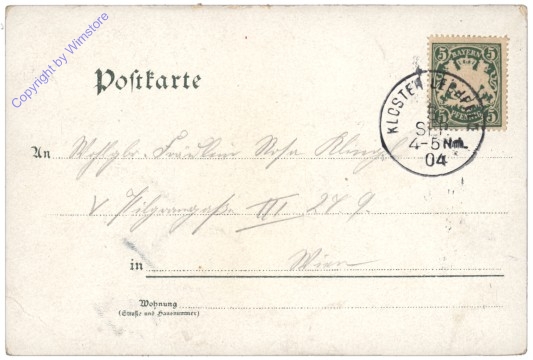 Copyright by Wimstore
Postkarte
BAYERN
5 5
5 PFENNIG 5
KLOSTER
SEP.
4-5 Nm.
04
An Wohlgb. Fräulein Rosa
V Pilgramgasse III 27 9.
in Wien
Wohnung
(Straße und Hausnummer)